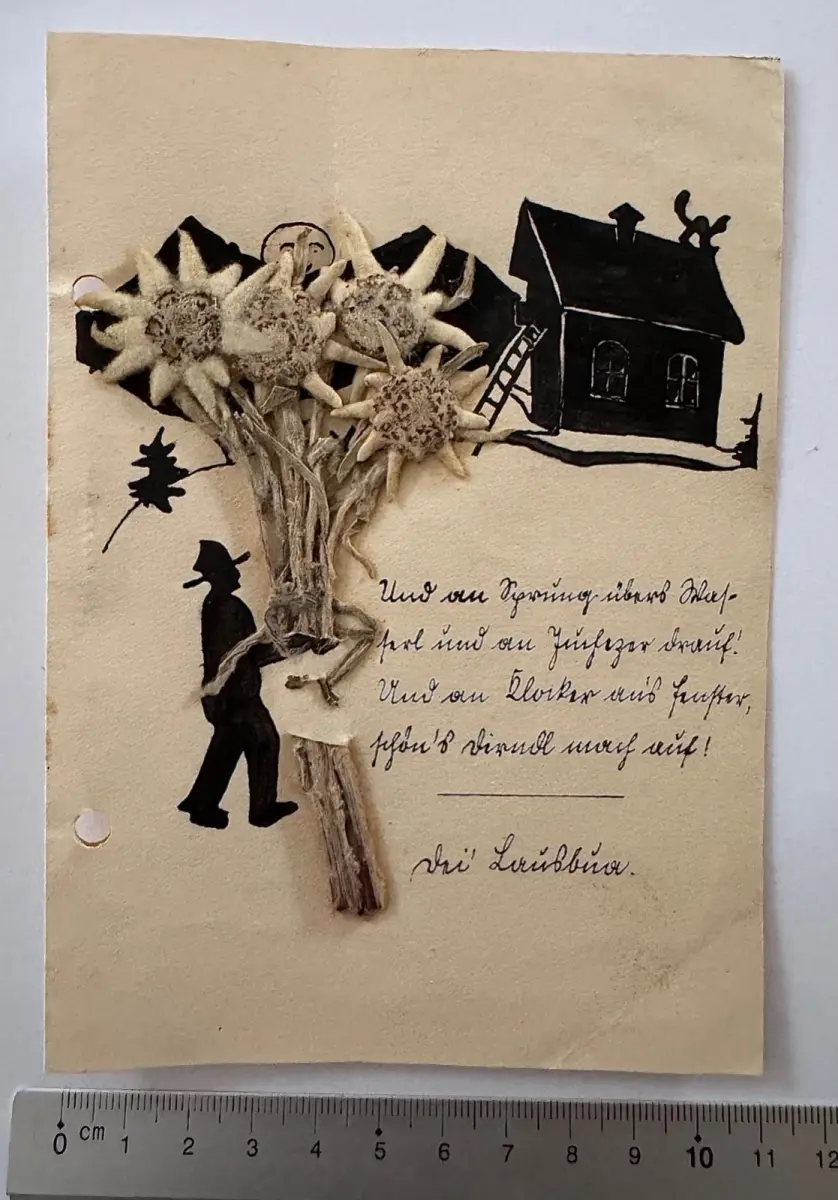 Und an Sprung übers Was-
serl und an Juchezer drauf!
Und an Klocker an's Fenster,
schön's Dirndl mach auf!
Dei' Lausbua.
0 cm 1 2 3 4 5 6 7 8 9 10 11 12